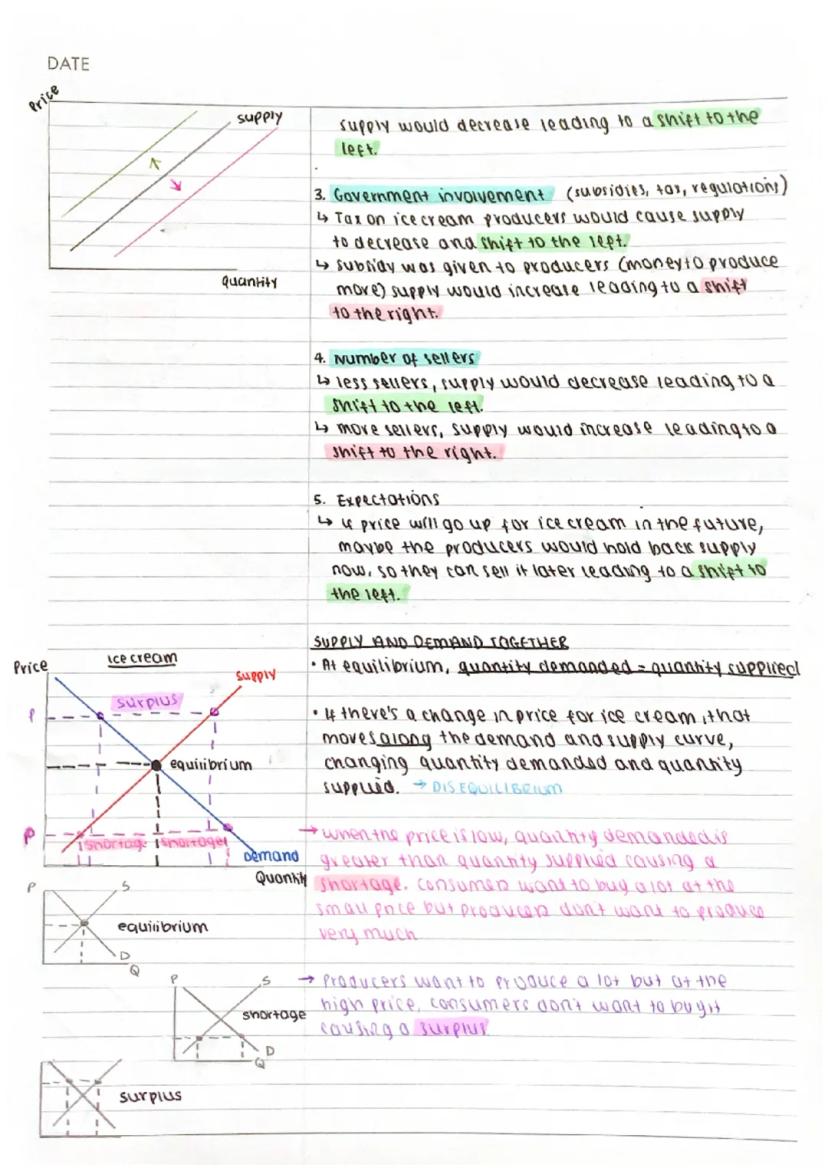 DATE
Price
supply
quantity
supply would decrease leading to a shift to the
left.
3. Government involvement (subsidies, tax, regulations)
↳ Tax on ice cream producers would cause supply
to decrease and shift to the left.
↳ subsidy was given to producers (money to produce
more) supply would increase leading to a shift
to the right.
4. Number of sellers
↳ less sellers, supply would decrease leading to a
shift to the left.
↳ more sellers, supply would increase leading to a
shift to the right.
5. Expectations
↳ if price will go up for ice cream in the future,
maybe the producers would hold back supply
now, so they can sell it later leading to a shift to
the left.
SUPPLY AND DEMAND TOGETHER
• At equilibrium, quantity demanded = quantity supplied
• If there's a change in price for ice cream, that
moves along the demand and supply curve,
changing quantity demanded and quantity
supplied. → DISEQUILIBRIUM
→ when the price is low, quantity demanded is
greater than quantity supplied causing a
shortage. consumers want to buy a lot at the
small price but producers don't want to produce
very much
→ Producers want to produce a lot but at the
high price, consumers don't want to buy it
causing a surplus
Price
ice cream
supply
surplus
P
equilibrium
P
shortage shortage
Demand
Quantity
P
S
equilibrium
D
Q
P
S
shortage
D
Q
surplus